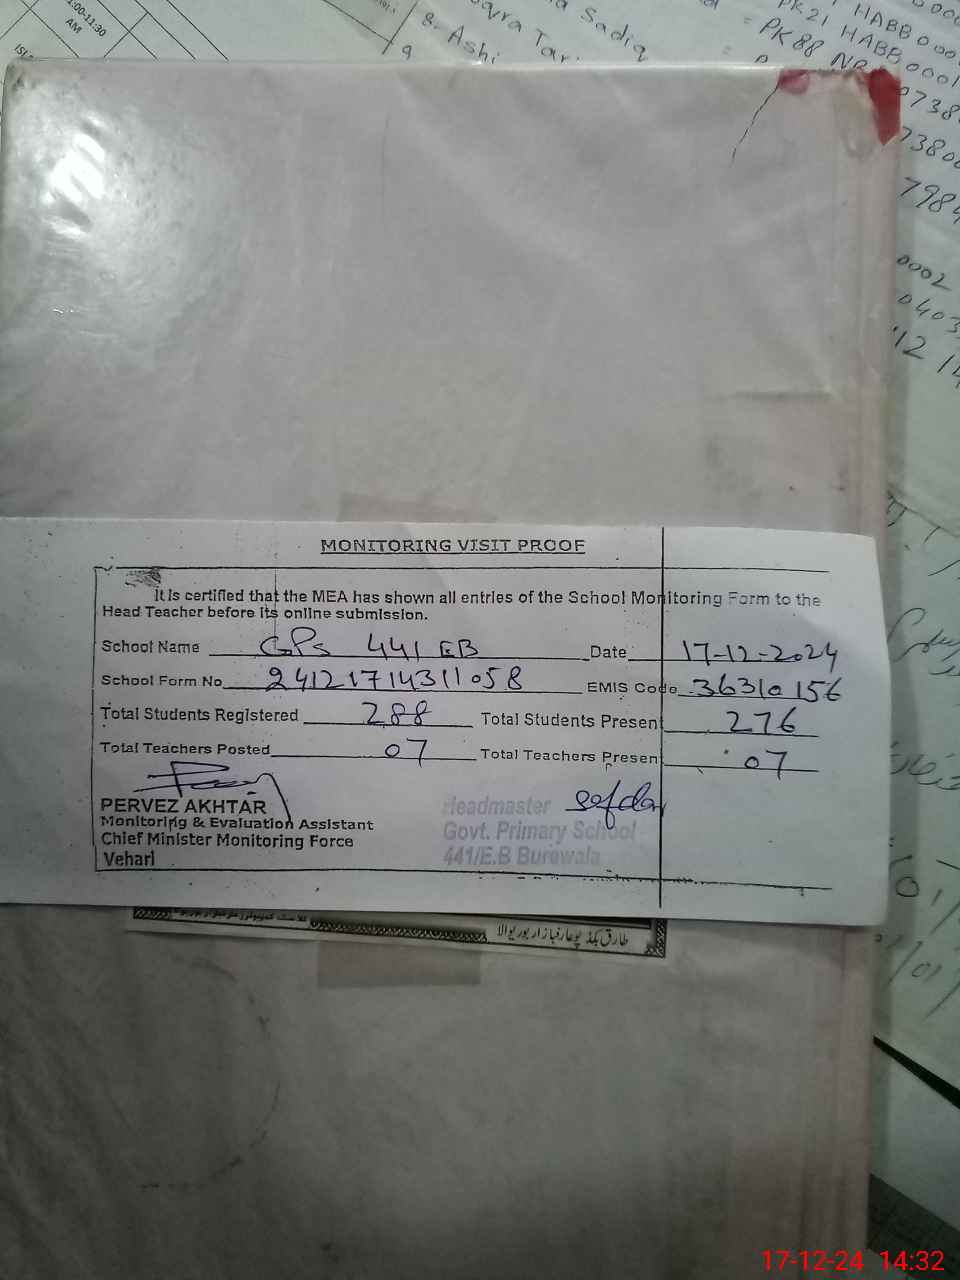 1:00-11:30
AM
Sadiq
8. Ashi
9
PK21 HABB 000
PK88
HABB 0001
0738
7380
7984
0002
0403
12 14
MONITORING VISIT PROOF
It is certified that the MEA has shown all entries of the School Monitoring Form to the
Head Teacher before its online submission.
School Name GPS 441 EB Date 17-12-2024
School Form No 24121714311058 EMIS Code 36310156
Total Students Registered 288 Total Students Present 276
Total Teachers Posted 07 Total Teachers Present 07
PERVEZ AKHTAR
Monitoring & Evaluation Assistant
Chief Minister Monitoring Force
Vehari
Headmaster safdar
Govt. Primary School
441/E.B Burewala
17-12-24 14:32